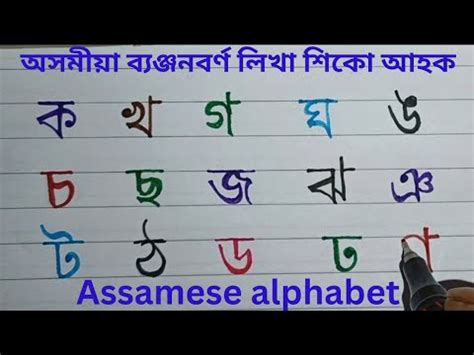 অসমীয়া ব্যঞ্জনবৰ্ণ লিখা শিকো আহক
ক খ গ ঘ ঙ
চ ছ জ ঝ ঞ
ট ঠ ড ঢ ণ
Assamese alphabet